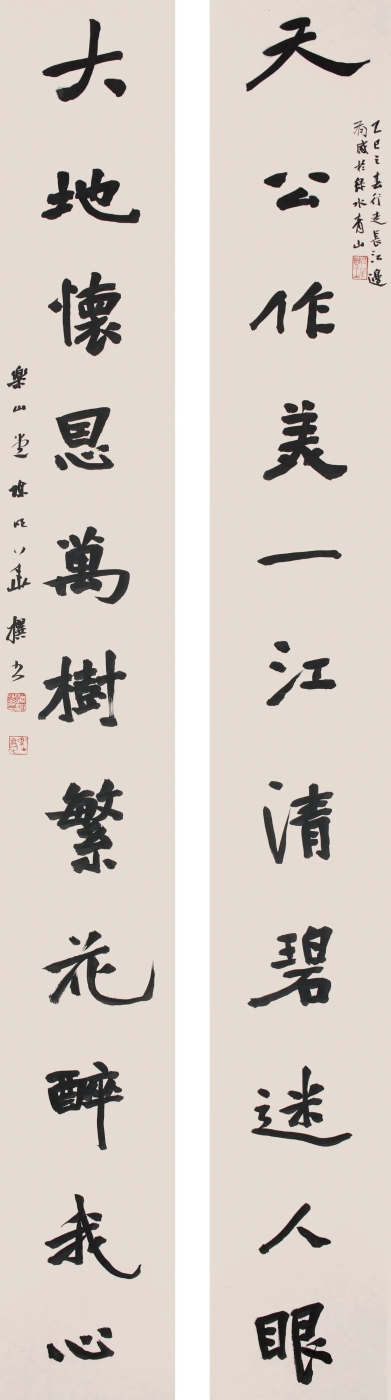 天公作美一江清碧迷人眼
乙巳之春行走長江邊
有感於綠水青山
大地懷恩萬樹繁花醉我心
樂山
撰書